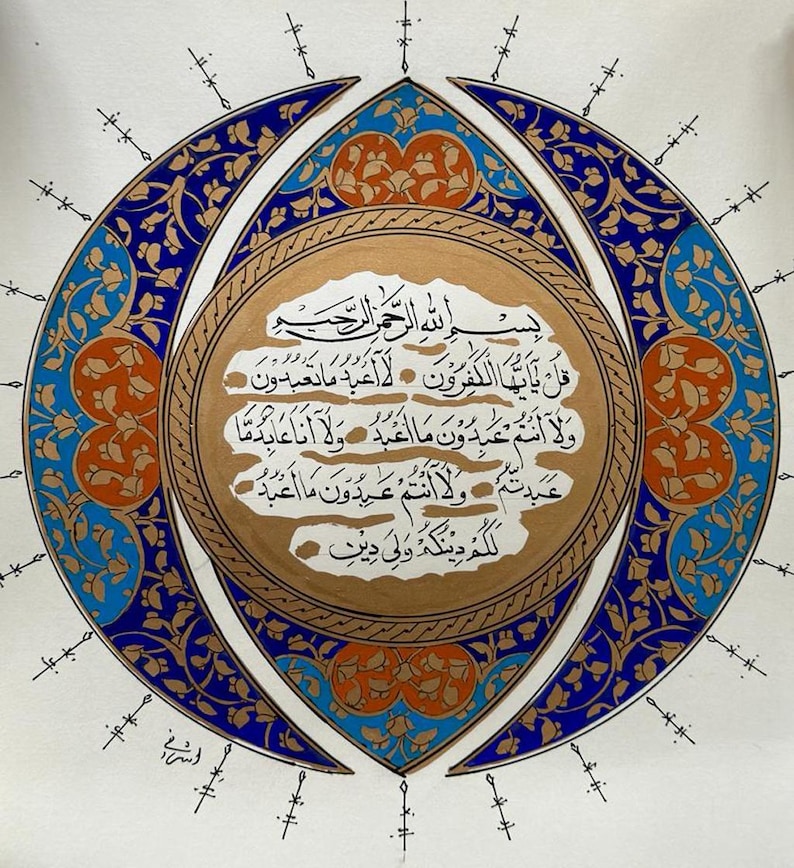 بِسْمِ اللهِ الرَّحْمٰنِ الرَّحِيْمِ
قُلْ يٰٓاَيُّهَا الْكٰفِرُوْنَ لَآ اَعْبُدُ مَا تَعْبُدُوْنَ
وَلَآ اَنْتُمْ عٰبِدُوْنَ مَآ اَعْبُدُ وَلَآ اَنَا عَابِدٌ مَّا
عَبَدْتُّمْ وَلَآ اَنْتُمْ عٰبِدُوْنَ مَآ اَعْبُدُ
لَكُمْ دِيْنُكُمْ وَلِيَ دِيْنِ